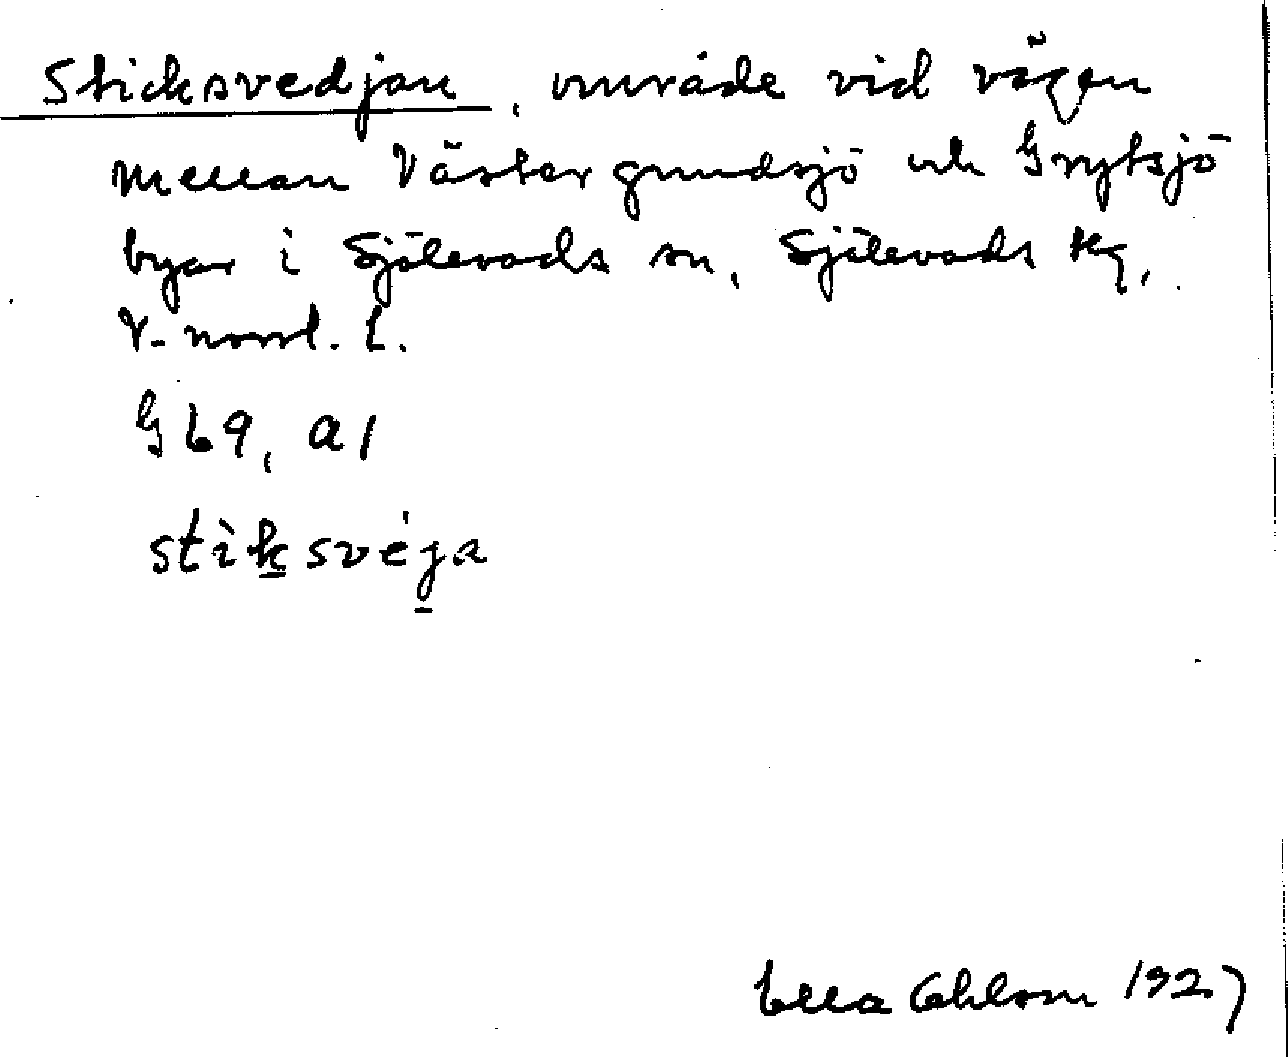 Sticksvedjan, område vid vägen
mellan Västergrundsjö och Grytsjö
byar i Själevads sn, Själevads tg,
V-norrl. l.
G 69, a 1
stìksvéja
Ella Ohlson 1927